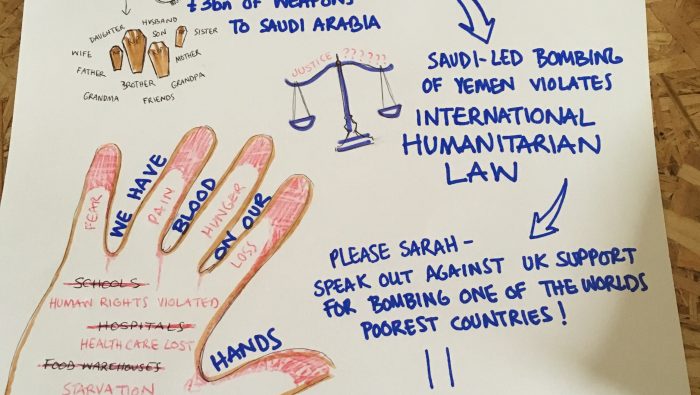 £3bn OF WEAPONS
TO SAUDI ARABIA
DAUGHTER
HUSBAND
SON
SISTER
WIFE
MOTHER
FATHER
BROTHER
GRANDPA
GRANDMA
FRIENDS
JUSTICE ??????
SAUDI-LED BOMBING
OF YEMEN VIOLATES
INTERNATIONAL
HUMANITARIAN
LAW
FEAR
WE HAVE
PAIN
BLOOD
HUNGER
ON OUR
LOSS
HANDS
SCHOOLS
HUMAN RIGHTS VIOLATED
HOSPITALS
HEALTHCARE LOST
FOOD WAREHOUSES
STARVATION
PLEASE SARAH -
SPEAK OUT AGAINST UK SUPPORT
FOR BOMBING ONE OF THE WORLDS
POOREST COUNTRIES!